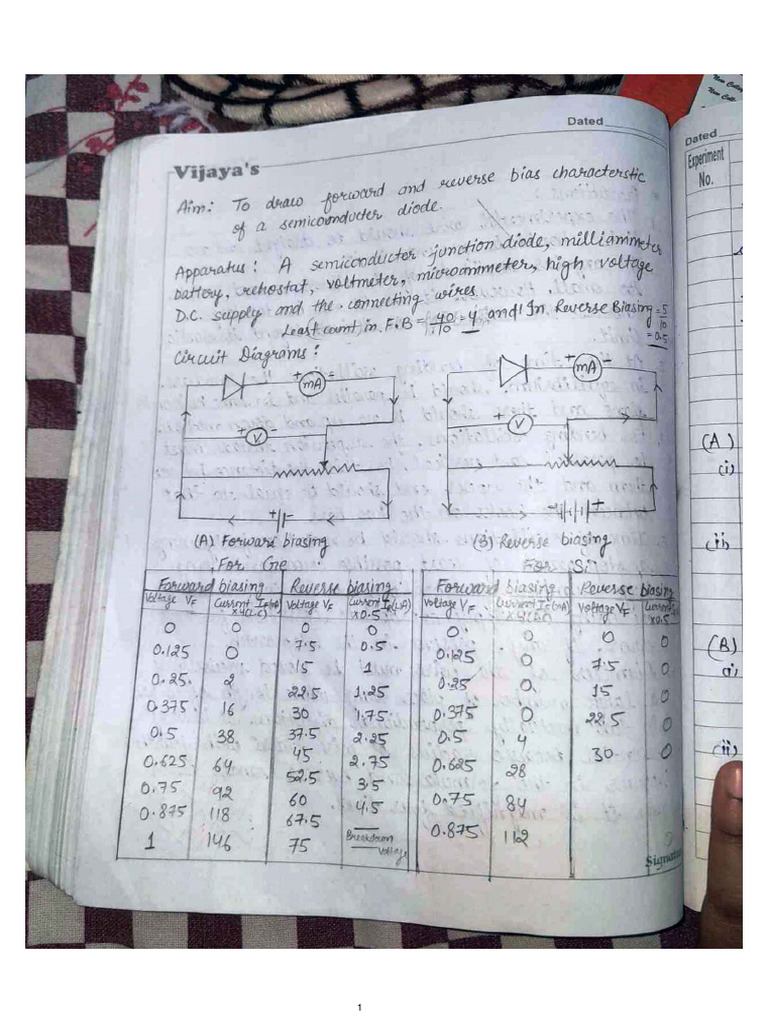 Dated
Vijaya's
Aim: To draw forward and reverse bias characterstic
of a semiconducter diode.
Apparatus: A semiconductor junction diode, milliammeter
battery, rehostat, voltmeter, microammeter, high voltage
D.C. supply and the connecting wires
Least count in F.B = 40/10 = 4 and In Reverse Biasing = 5/10
= 0.5
Circuit Diagrams:
+ mA -
+ V -
+ -
(A) Forward biasing
+ mA -
+ V -
- +
(B) Reverse biasing
For Ge
Forward biasing | Reverse biasing
Voltage VF | Current IF(mA) x4(L.C) | Voltage VF | Current IR(μA) x0.5
0 | 0 | 0 | 0
0.125 | 0 | 7.5 | 0.5
0.25 | 2 | 15 | 1
0.375 | 16 | 22.5 | 1.25
0.5 | 38 | 30 | 1.75
0.625 | 64 | 37.5 | 2.25
0.75 | 92 | 45 | 2.75
0.875 | 118 | 52.5 | 3.5
1 | 146 | 60 | 4.5
67.5
75 | Breakdown Voltage
For Si
Forward biasing | Reverse biasing
Voltage VF | Current IF(mA) | Voltage VF | Current x0.5
0 | 0 | 0 | 0
0.125 | 0 | 7.5 | 0
0.25 | 0 | 15 | 0
0.375 | 0 | 22.5 | 0
0.5 | 4 | 30 | 0
0.625 | 28
0.75 | 84
0.875 | 112
Dated
Experiment
No.
(A)
(i)
(ii)
(B)
(i)
(ii)
1